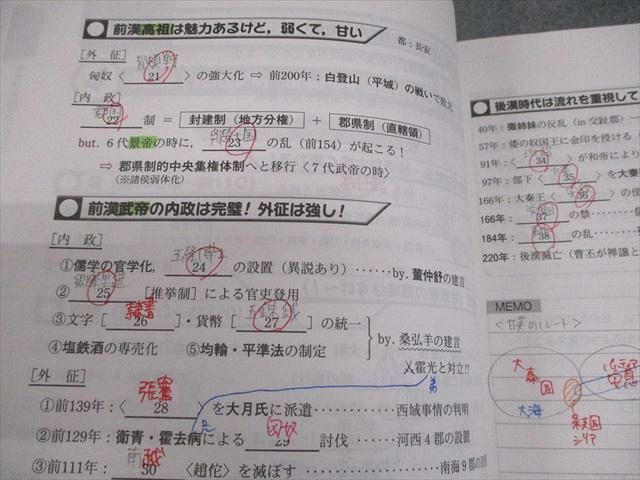 前漢高祖は魅力あるけど，弱くて，甘い
都：長安
[外　征]
冒頓単
匈奴〈 21 〉の強大化 ⇨ 前200年：白登山（平城）の戦いで敗北
[内　政]
郡国
22 制 ＝ 封建制（地方分権） ＋ 郡県制（直轄領）
but. 6代景帝の時に， 23 の乱（前154）が起こる！
⇨ 郡県制的中央集権体制へと移行〈7代武帝の時〉
（※諸侯弱体化）
前漢武帝の内政は完璧！外征は強し！
[内　政]
五経博士
①儒学の官学化， 24 の設置（異説あり）……by. 董仲舒の建言
② 25 [推挙制]による官吏登用
隷書
五銖銭
③文字[ 26 ]・貨幣[ 27 ]の統一
by. 桑弘羊の建言
④塩鉄酒の専売化　⑤均輸・平準法の制定
霍光と対立!!
弟
[外　征]
張騫
①前139年：〈 28 〉を大月氏に派遣…………西域事情の判明
兄
匈奴
②前129年：衛青・霍去病による 29 討伐……河西4郡の設置
南越
③前111年： 30 〈趙佗〉を滅ぼす…………南海9郡の設
後漢時代は流れを重視して
40年：徴姉妹の反乱（in 交趾郡）
57年：倭の奴国王に金印を授ける
91年：〈 34 〉が和帝により
97年：部下〈 35 〉を大秦
166年：大秦王〈 36 〉の使
166年： 37 の禁
184年： 38 の乱
220年：後漢滅亡（曹丕が禅譲と
MEMO
大秦国
大海
条支国
シリア
パルティア
安息